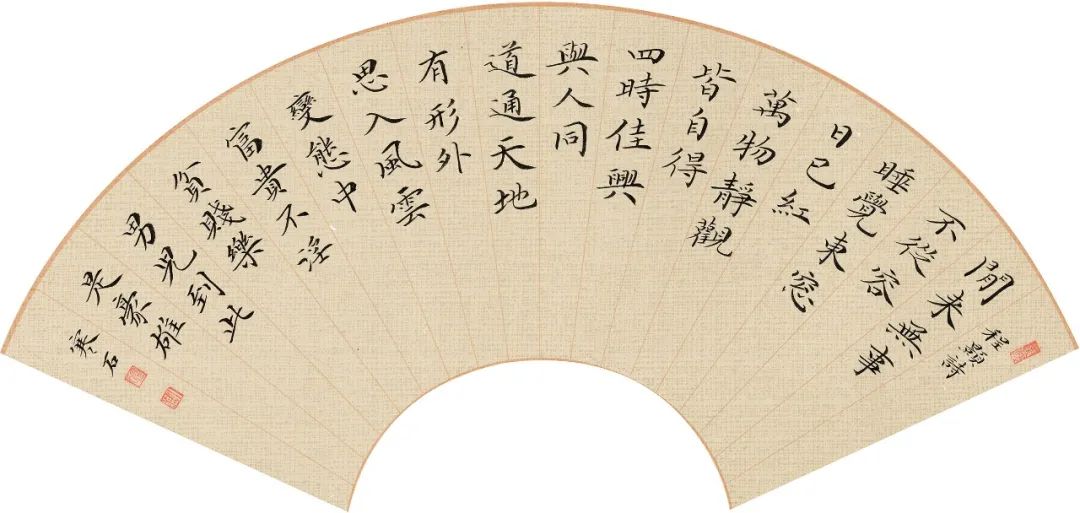 程顥詩
閒来無事
不從容
睡覺東窓
日已紅
萬物靜觀
皆自得
四時佳興
與人同
道通天地
有形外
思入風雲
變態中
富貴不淫
貧賤樂
男兒到此
是豪雄
寒石